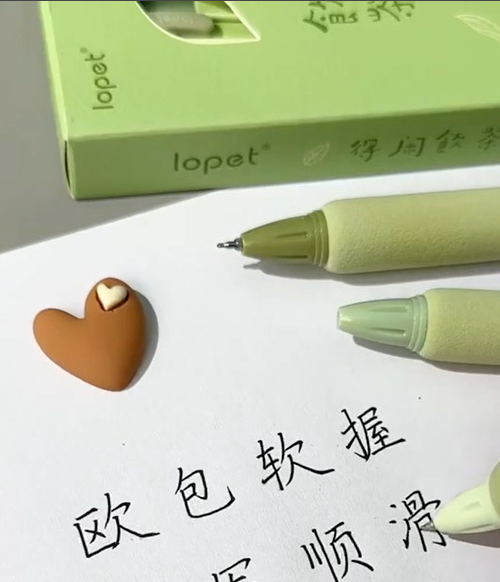 lopet
lopet
得闲飲茶
欧包软握
顺滑